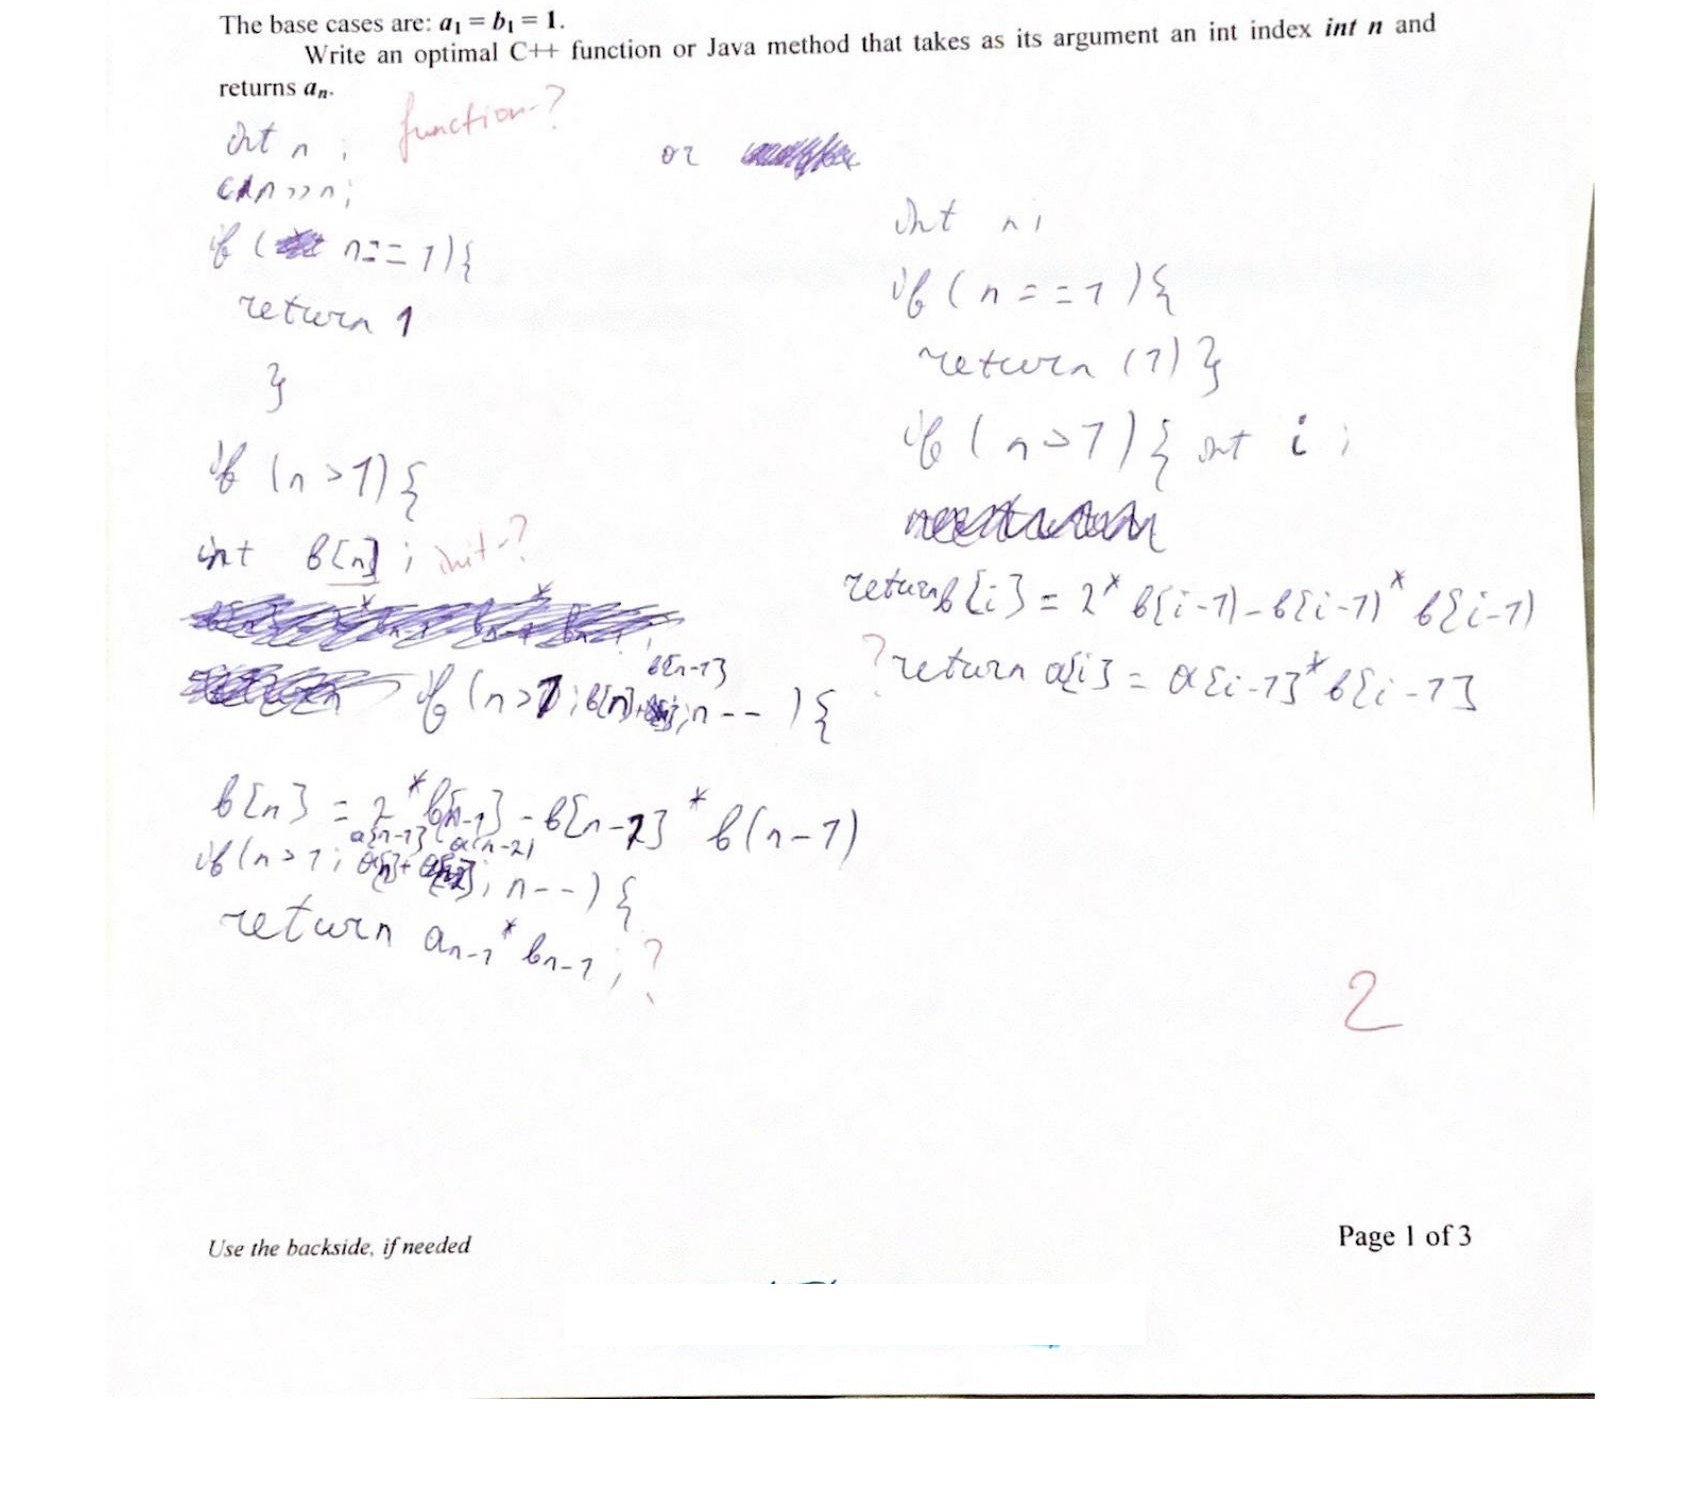 The base cases are: a₁ = b₁ = 1.
Write an optimal C++ function or Java method that takes as its argument an int index int n and
returns aₙ.
function-?
int n ;
cin >> n ;
if ( n == 1) {
return 1
}
if (n > 1) {
int b[n] ; init-?
b[n-1]
if (n > 1 ; b[n] ; n-- ) {
b[n] = 2 * b[n-1] - b[n-2] * b(n-1)
a[n-1] a(n-2)
if (n > 1 ; ; n--) {
return aₙ₋₁ * bₙ₋₁ ; ?
or
int n ;
if (n == 1) {
return (1) }
if (n > 1) { int i ;
return b[i] = 2 * b[i-1) - b[i-1) * b[i-1)
? return a[i] = a[i-1] * b[i-1]
2
Use the backside, if needed
Page 1 of 3